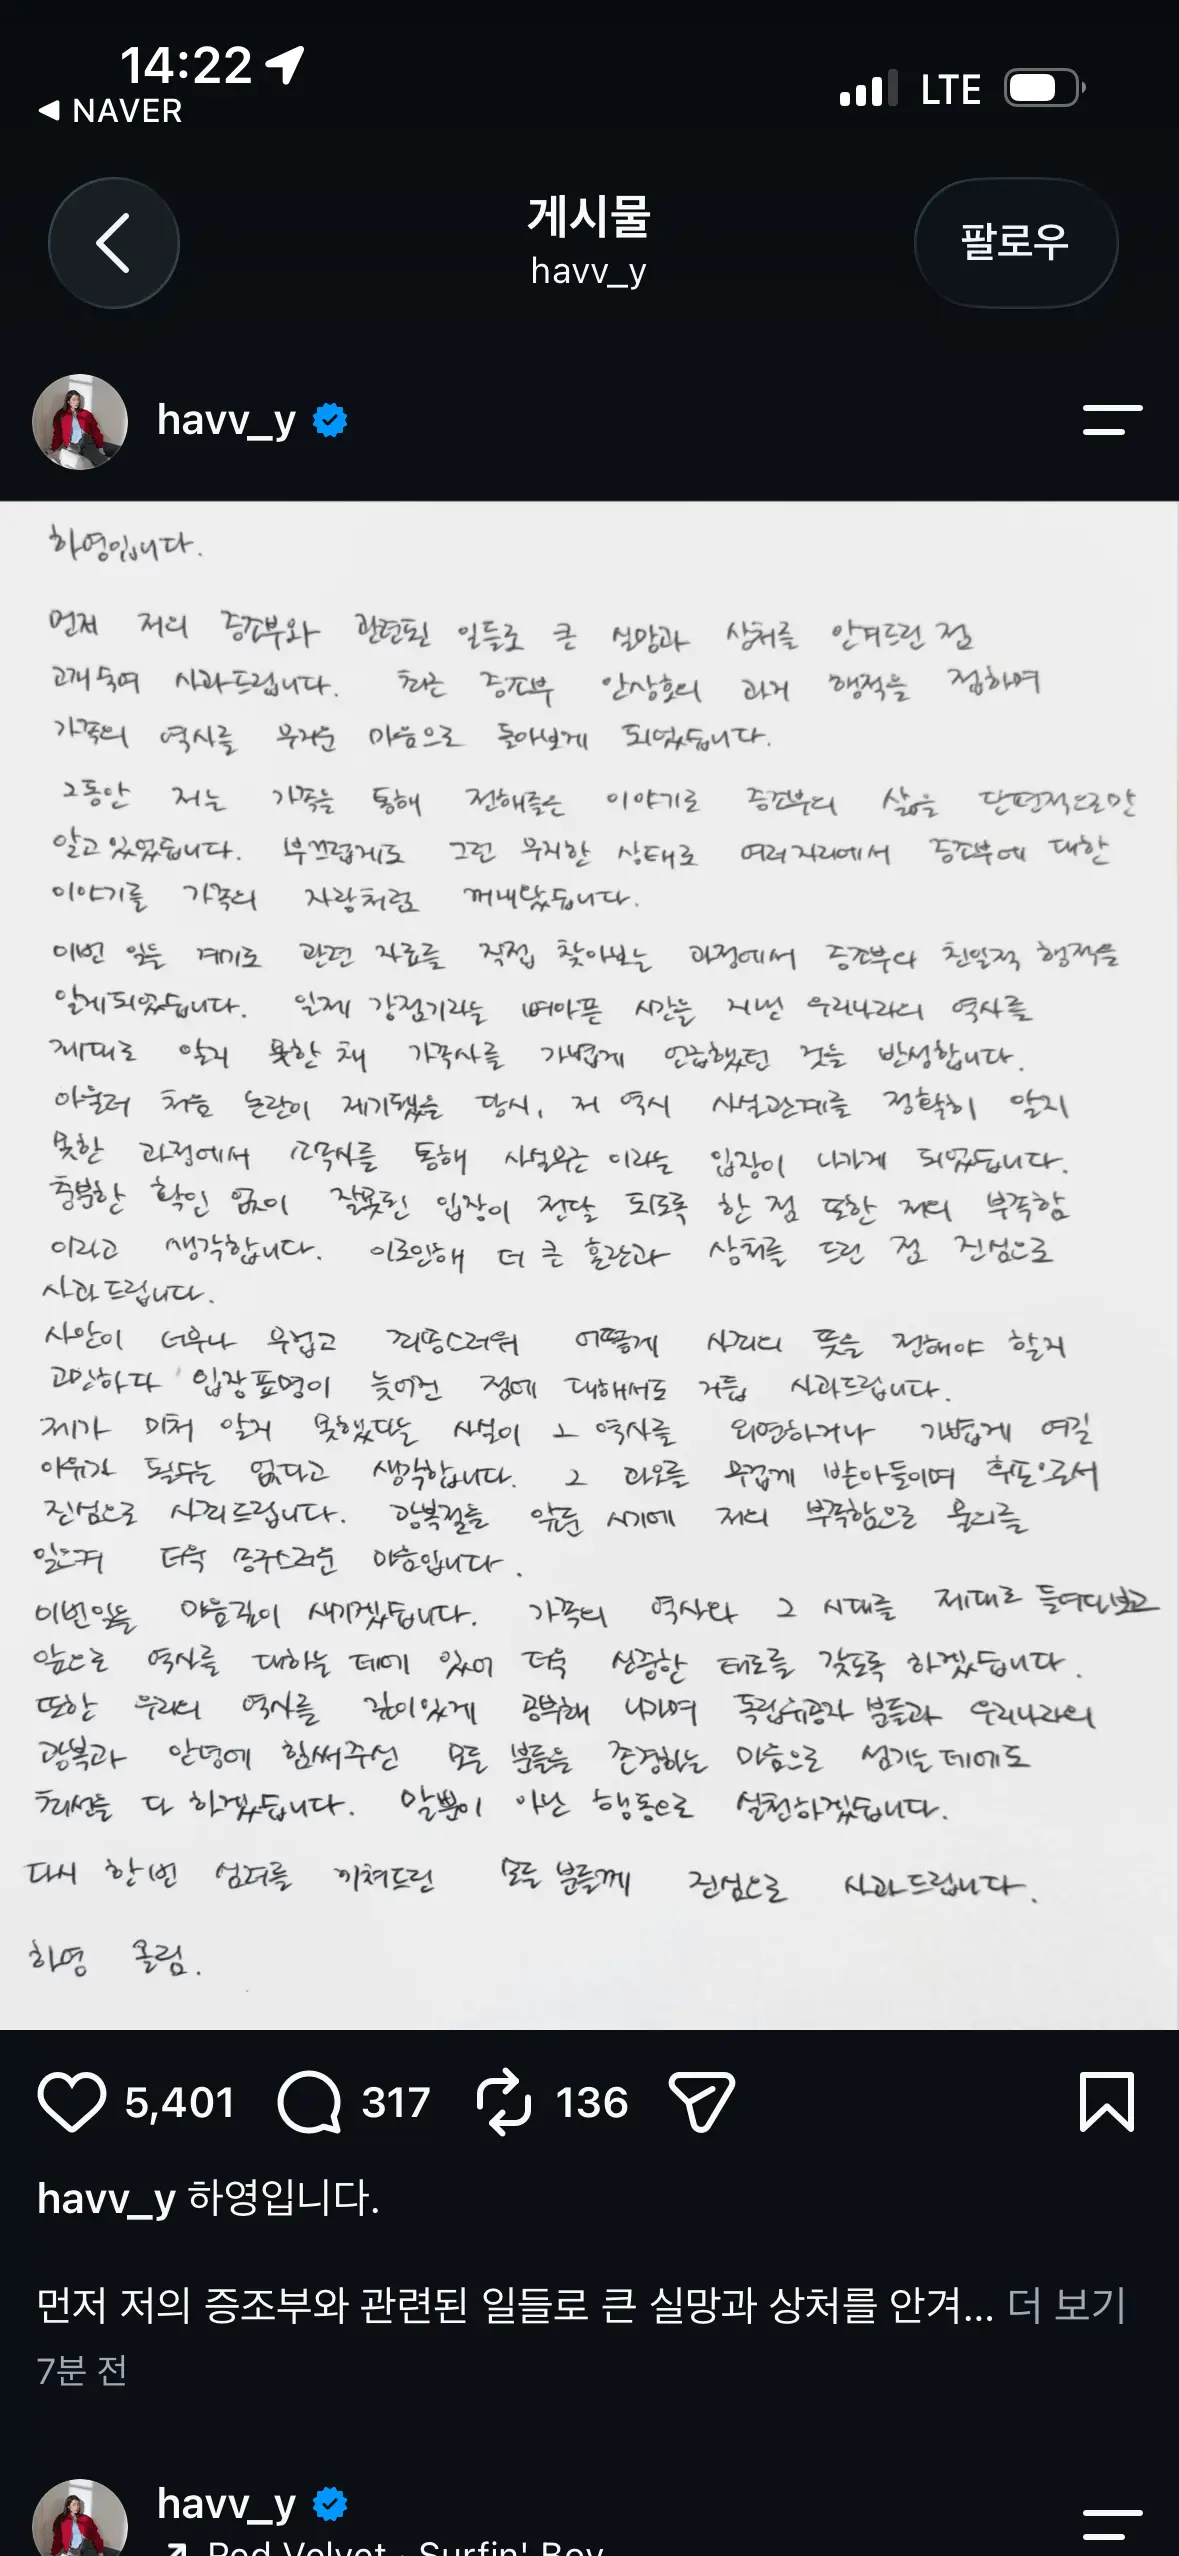 14:22
LTE
◀ NAVER
게시물
havv_y
팔로우
havv_y
하영입니다.
먼저 저의 증조부와 관련된 일들로 큰 실망과 상처를 안겨드린 점
고개 숙여 사과드립니다. 최근 증조부 안상호의 과거 행적을 접하며
가족의 역사를 무거운 마음으로 돌아보게 되었습니다.
그동안 저는 가족을 통해 전해들은 이야기로 증조부의 삶을 단편적으로만
알고 있었습니다. 부끄럽게도 그런 무지한 상태로 여러 자리에서 증조부에 대한
이야기를 가족의 자랑처럼 꺼내왔습니다.
이번 일을 계기로 관련 자료를 직접 찾아보는 과정에서 증조부의 친일적 행적을
알게 되었습니다. 일제 강점기라는 뼈아픈 시간을 지낸 우리나라의 역사를
제대로 알지 못한 채 가족사를 가볍게 언급했던 것을 반성합니다.
아울러 처음 논란이 제기됐을 당시, 저 역시 사실관계를 정확히 알지
못한 과정에서 소속사를 통해 사실무근 이라는 입장이 나가게 되었습니다.
충분한 확인 없이 잘못된 입장이 전달 되도록 한 점 또한 저의 부족함
이라고 생각합니다. 이로인해 더 큰 혼란과 상처를 드린 점 진심으로
사과드립니다.
사안이 너무나 무겁고 죄송스러워 어떻게 사죄의 뜻을 전해야 할지
고민하다 입장표명이 늦어진 점에 대해서도 거듭 사과드립니다.
제가 미처 알지 못했다는 사실이 그 역사를 외면하거나 가볍게 여길
이유가 될수는 없다고 생각합니다. 그 과오를 무겁게 받아들이며 후손으로서
진심으로 사죄드립니다. 광복절을 앞둔 시기에 저의 부족함으로 물의를
일으켜 더욱 송구스러운 마음입니다.
이번일을 마음깊이 새기겠습니다. 가족의 역사와 그 시대를 제대로 들여다보고
앞으로 역사를 대하는 데에 있어 더욱 신중한 태도를 갖도록 하겠습니다.
또한 우리의 역사를 깊이있게 공부해 나가며 독립유공자 분들과 우리나라의
광복과 안녕에 힘써주신 모든 분들을 존경하는 마음으로 섬기는 데에도
최선을 다 하겠습니다. 말뿐이 아닌 행동으로 실천하겠습니다.
다시 한번 심려를 끼쳐드린 모든 분들께 진심으로 사과드립니다.
하영 올림.
5,401 317 136
havv_y 하영입니다.
먼저 저의 증조부와 관련된 일들로 큰 실망과 상처를 안겨... 더 보기
7분 전
havv_y
Red Velvet · Surfin' Boy